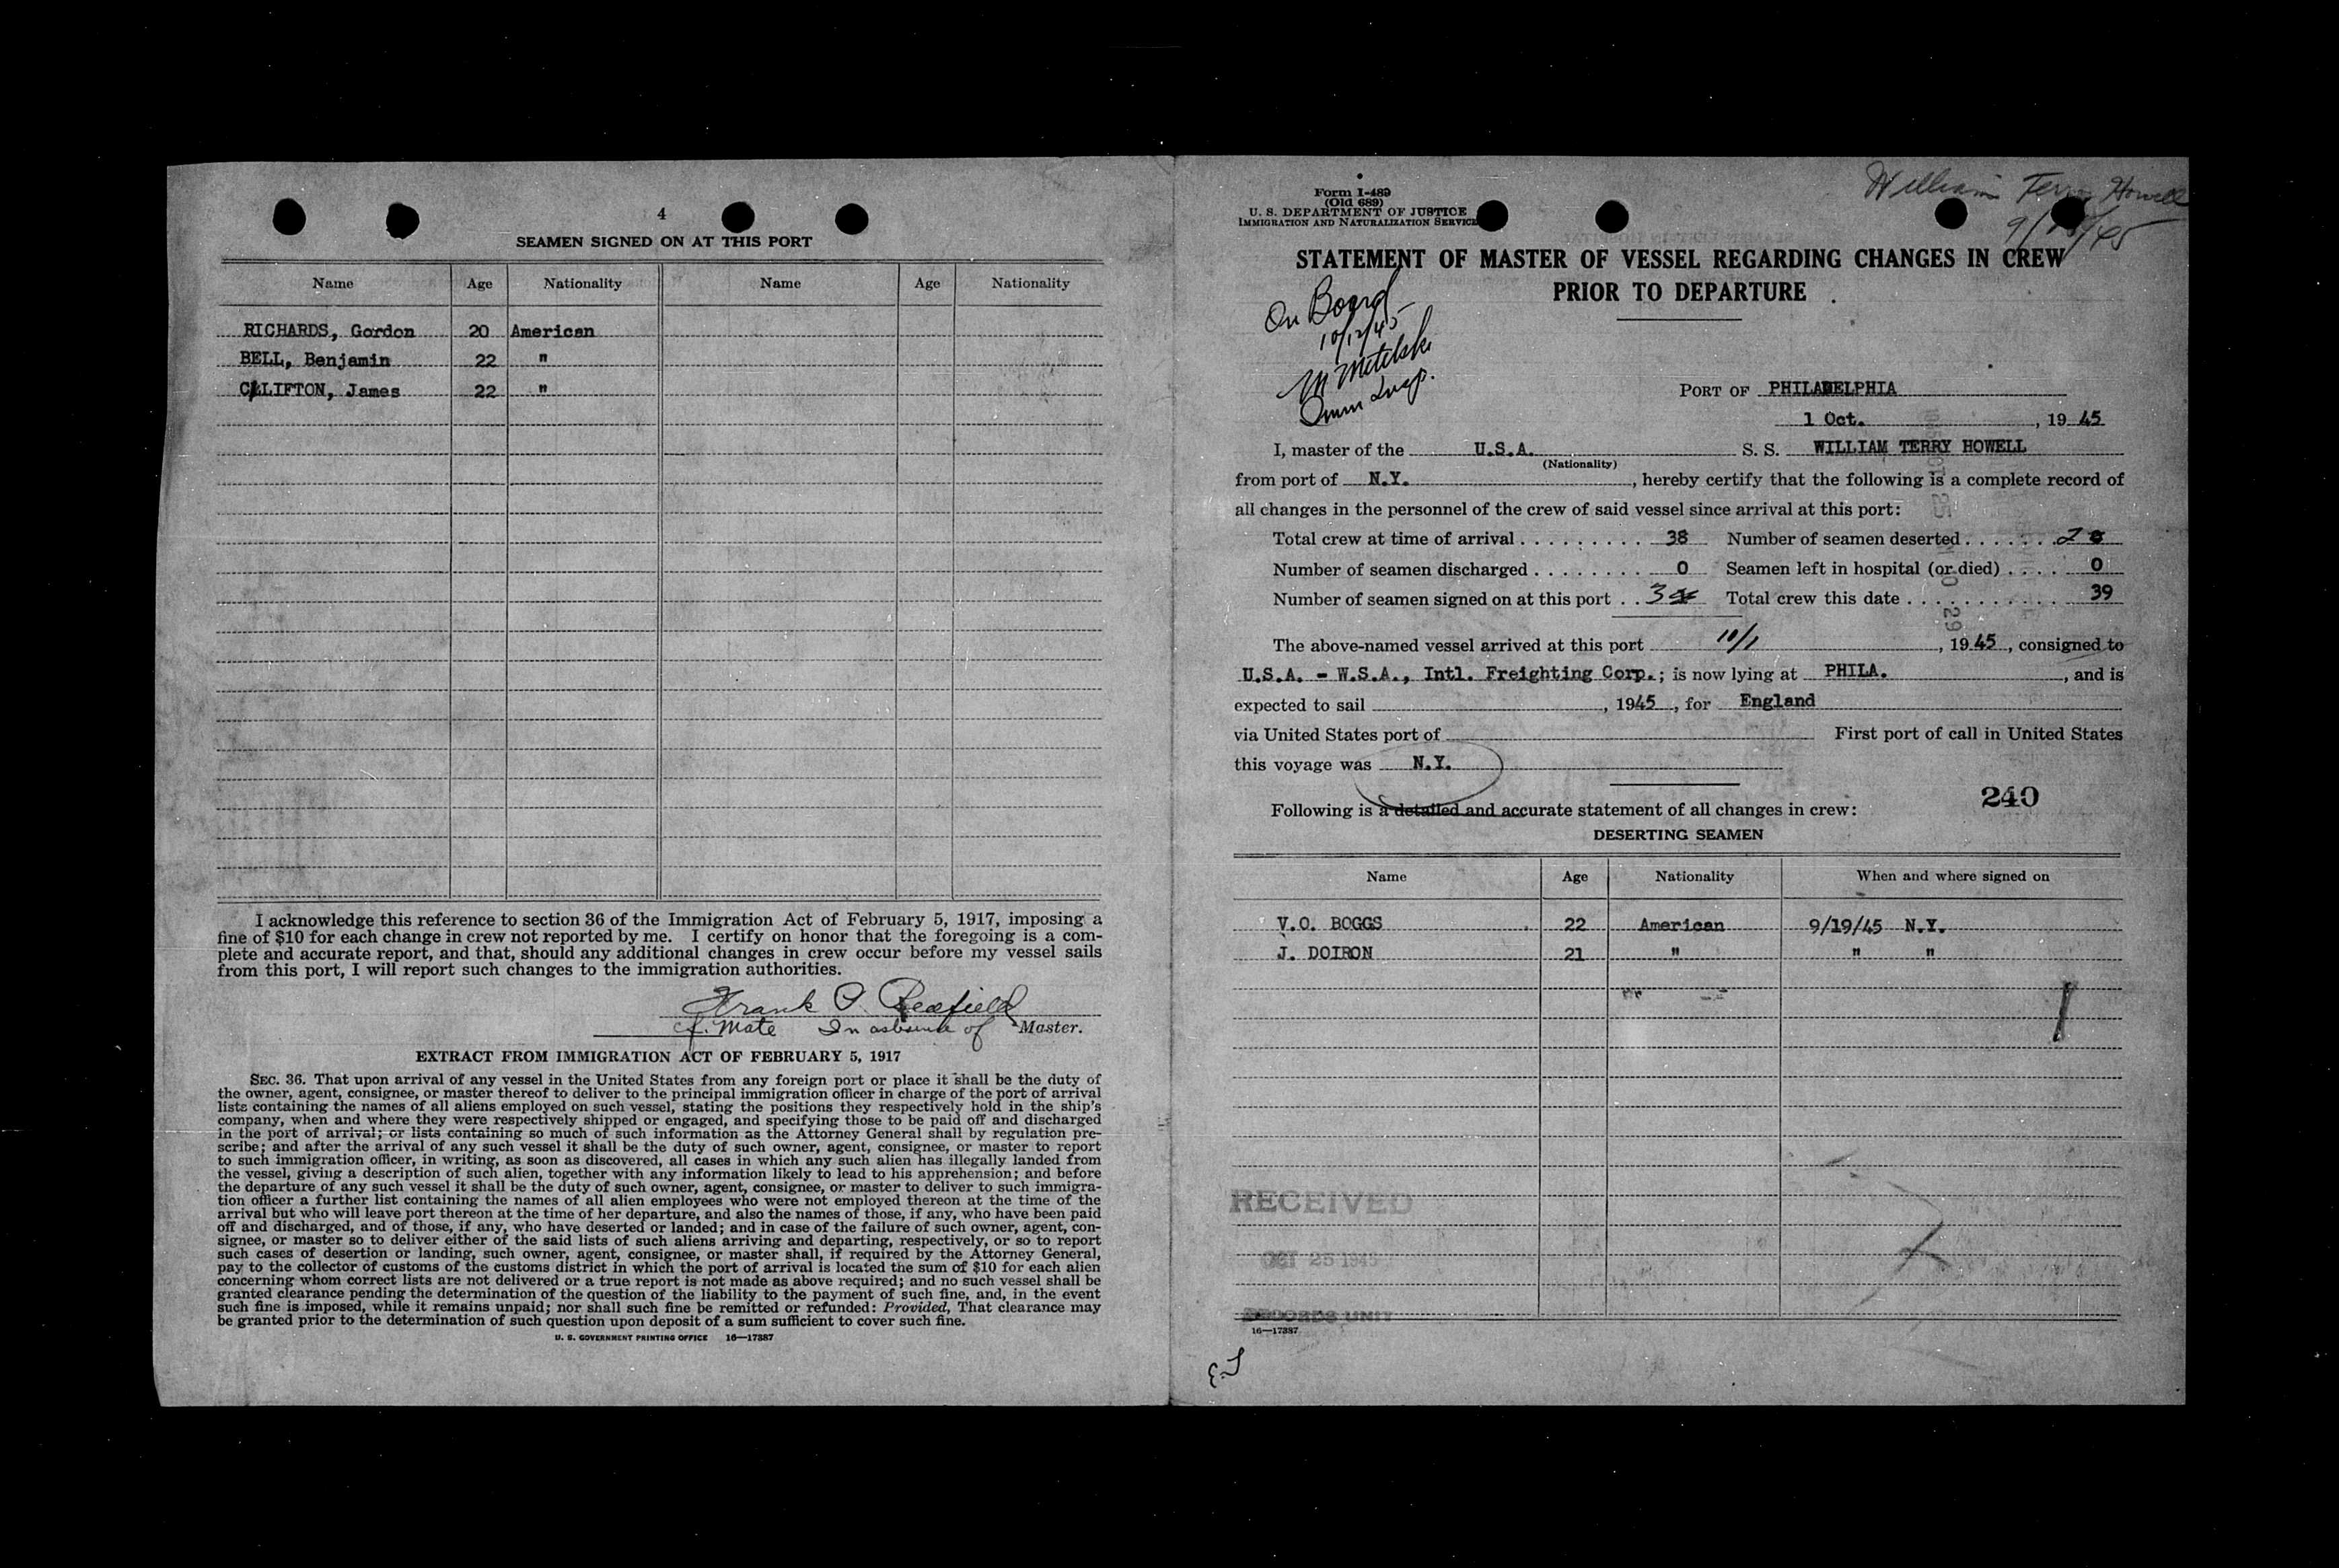 4
SEAMEN SIGNED ON AT THIS PORT
Name Age Nationality Name Age Nationality
RICHARDS, Gordon 20 American
BELL, Benjamin 22 "
CLLIFTON, James 22 "
I acknowledge this reference to section 36 of the Immigration Act of February 5, 1917, imposing a
fine of $10 for each change in crew not reported by me. I certify on honor that the foregoing is a com-
plete and accurate report, and that, should any additional changes in crew occur before my vessel sails
from this port, I will report such changes to the immigration authorities.
Frank P. Redfield
cf. Mate In absence of Master.
EXTRACT FROM IMMIGRATION ACT OF FEBRUARY 5, 1917
SEC. 36. That upon arrival of any vessel in the United States from any foreign port or place it shall be the duty of
the owner, agent, consignee, or master thereof to deliver to the principal immigration officer in charge of the port of arrival
lists containing the names of all aliens employed on such vessel, stating the positions they respectively hold in the ship's
company, when and where they were respectively shipped or engaged, and specifying those to be paid off and discharged
in the port of arrival; or lists containing so much of such information as the Attorney General shall by regulation pre-
scribe; and after the arrival of any such vessel it shall be the duty of such owner, agent, consignee, or master to report
to such immigration officer, in writing, as soon as discovered, all cases in which any such alien has illegally landed from
the vessel, giving a description of such alien, together with any information likely to lead to his apprehension; and before
the departure of any such vessel it shall be the duty of such owner, agent, consignee, or master to deliver to such immigra-
tion officer a further list containing the names of all alien employees who were not employed thereon at the time of the
arrival but who will leave port thereon at the time of her departure, and also the names of those, if any, who have been paid
off and discharged, and of those, if any, who have deserted or landed; and in case of the failure of such owner, agent, con-
signee, or master so to deliver either of the said lists of such aliens arriving and departing, respectively, or so to report
such cases of desertion or landing, such owner, agent, consignee, or master shall, if required by the Attorney General,
pay to the collector of customs of the customs district in which the port of arrival is located the sum of $10 for each alien
concerning whom correct lists are not delivered or a true report is not made as above required; and no such vessel shall be
granted clearance pending the determination of the question of the liability to the payment of such fine, and, in the event
such fine is imposed, while it remains unpaid; nor shall such fine be remitted or refunded: Provided, That clearance may
be granted prior to the determination of such question upon deposit of a sum sufficient to cover such fine.
U. S. GOVERNMENT PRINTING OFFICE 16—17387
Form I-489
(Old 689)
U. S. DEPARTMENT OF JUSTICE
IMMIGRATION AND NATURALIZATION SERVICE
William Terry Howell
STATEMENT OF MASTER OF VESSEL REGARDING CHANGES IN CREW
PRIOR TO DEPARTURE
On Board
10/12/45
M Metelski
Imm Insp.
PORT OF PHILADELPHIA
1 Oct. , 19 45
I, master of the U.S.A. S. S. WILLIAM TERRY HOWELL
(Nationality)
from port of N.Y. , hereby certify that the following is a complete record of
all changes in the personnel of the crew of said vessel since arrival at this port:
Total crew at time of arrival . . . . . . . . . 38 Number of seamen deserted . . . . . . 2
Number of seamen discharged . . . . . . . . 0 Seamen left in hospital (or died) . . . . 0
Number of seamen signed on at this port . . 3 Total crew this date . . . . . . . . . . . 39
The above-named vessel arrived at this port 10/1 , 19 45 , consigned to
U.S.A. - W.S.A., Intl. Freighting Corp. ; is now lying at PHILA. , and is
expected to sail , 1945 , for England
via United States port of First port of call in United States
this voyage was N.Y.
Following is a detailed and accurate statement of all changes in crew:
240
DESERTING SEAMEN
Name Age Nationality When and where signed on
V.O. BOGGS 22 American 9/19/45 N.Y.
J. DOIRON 21 " " "
RECEIVED
OCT 25 1945
RECORDS UNIT
16—17387